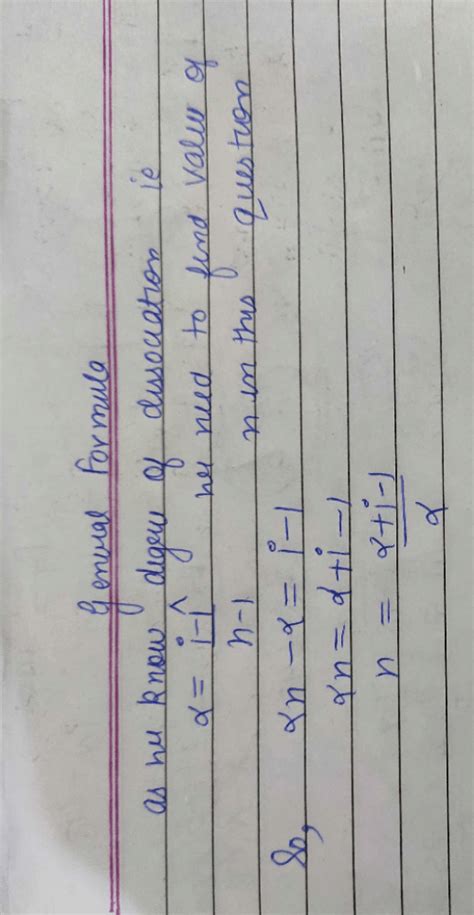 General Formula
as we know degree of dissociation ie
α = i-1 we need to find value of
n-1 n in this question
So, αn - α = i - 1
αn = α + i - 1
n = α + i - 1
α